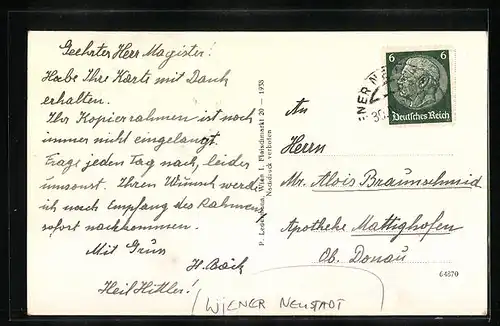 Geehrter Herr Magister!
Habe Ihre Karte mit Dank
erhalten.
Ihr Kopierrahmen ist noch
immer nicht eingelangt.
Frage jeden Tag nach, leider
umsonst. Ihren Wunsch werde
ich nach Empfang des Rahmens
sofort nachkommen.
Mit Gruss
H. Böck
Heil Hitler!
Wien I. Fleischmarkt 20 — 1938
Nachdruck verboten
6 6
Deutsches Reich
ENER NE
30.
An
Herrn
Mr. Alois Braunschmid
Apotheke Mattighofen
Ob. Donau
64870
WIENER NEUSTADT